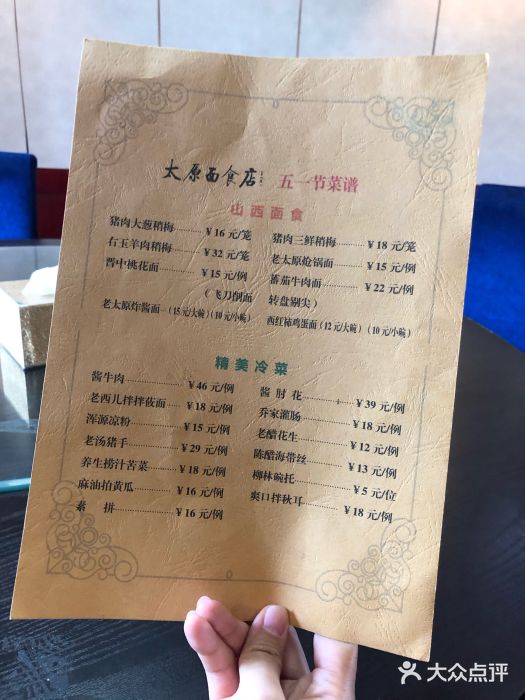 太原面食店 五一节菜谱
山西面食
猪肉大葱稍梅 ¥16元/笼 猪肉三鲜稍梅 ¥18元/笼
右玉羊肉稍梅 ¥32元/笼 老太原炝锅面 ¥15元/例
晋中桃花面 ¥15元/例 蕃茄牛肉面 ¥22元/例
(飞刀削面 转盘剔尖)
老太原炸酱面(15元/大碗)(10元/小碗) 西红柿鸡蛋面(12元/大碗)(10元/小碗)
精美冷菜
酱牛肉 ¥46元/例 酱肘花 ¥39元/例
老西儿拌拌莜面 ¥18元/例 乔家灌肠 ¥18元/例
浑源凉粉 ¥15元/例 老醋花生 ¥12元/例
老汤猪手 ¥29元/例 陈醋海带丝 ¥13元/例
养生捞汁苦菜 ¥18元/例 柳林碗托 ¥5元/位
麻油拍黄瓜 ¥16元/例 爽口拌秋耳 ¥18元/例
素拼 ¥16元/例
大众点评